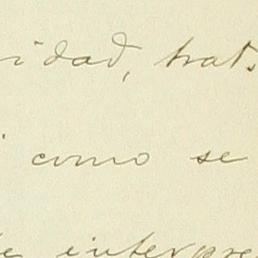 idad, trat.
como se
interpre